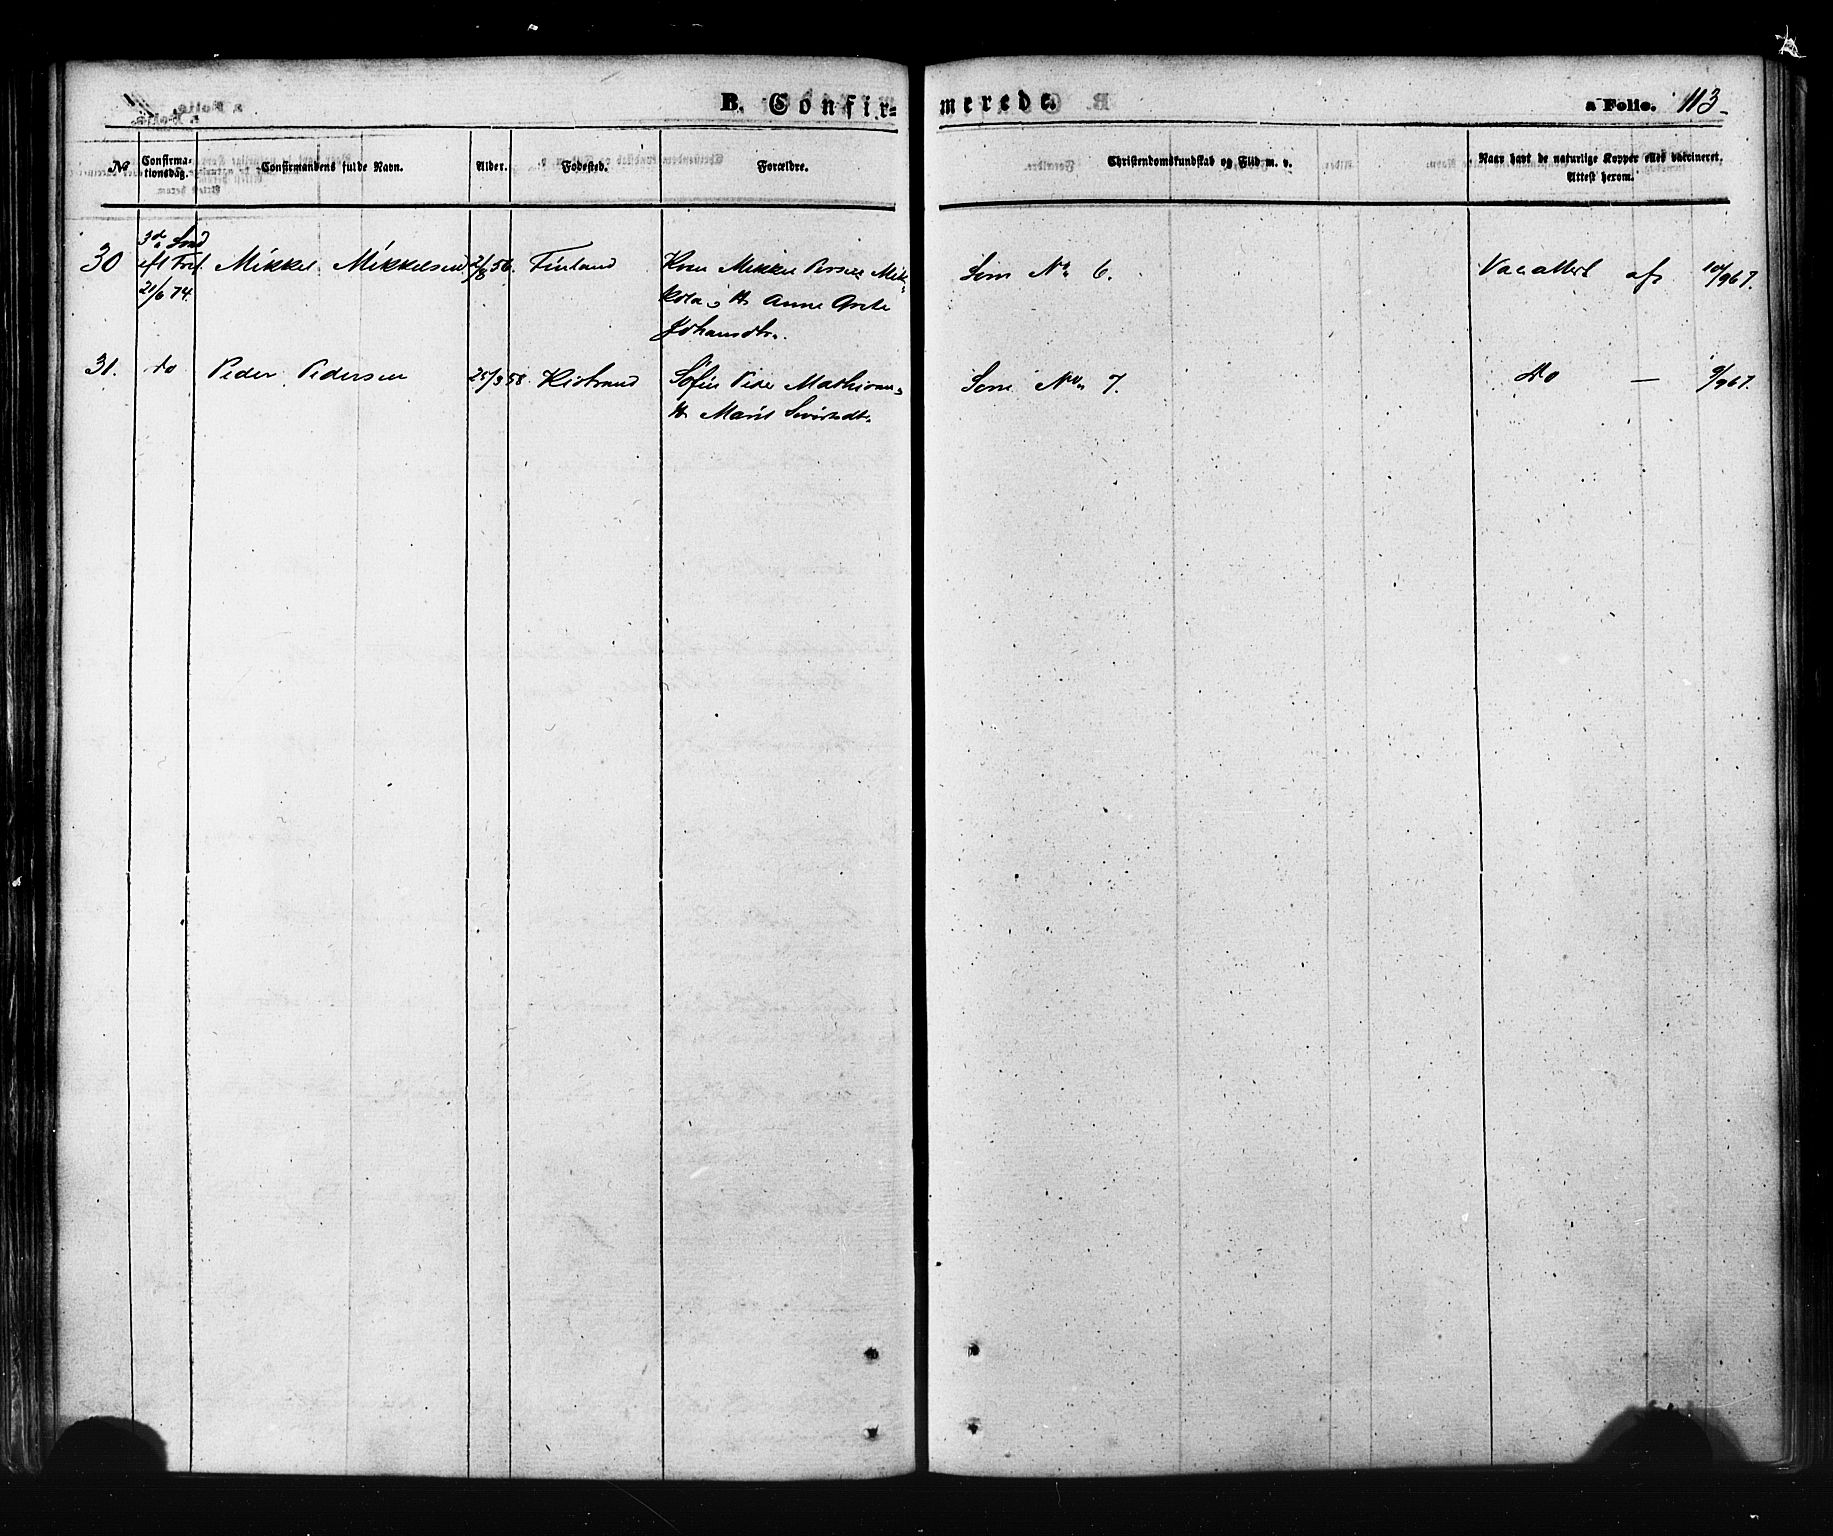 B. Confir=
merede.
a Folio. 113
№
Confirma-
tionsdag.
Confirmandens fulde Navn.
Alder.
Fødested.
Forældre.
Christendomskundskab og Flid m. v.
Naar havt de naturlige Kopper eller vaccineret.
Attest herom.
30
3die Snd
eft Tref.
21/6 74.
Mikkel Mikkelsen
2/8 56.
Finland
Kven Mikkel Persen Mik-
kola, H. Anne Grete
Johansdtr.
Som No 6.
Vacattest af 10/9 67.
31.
do
Peder Pedersen
25/3 58.
Kistrand
Søfin Peder Mathisen,
H. Marit Sivertsdtr.
Som No 7.
Do — 9/9 67.